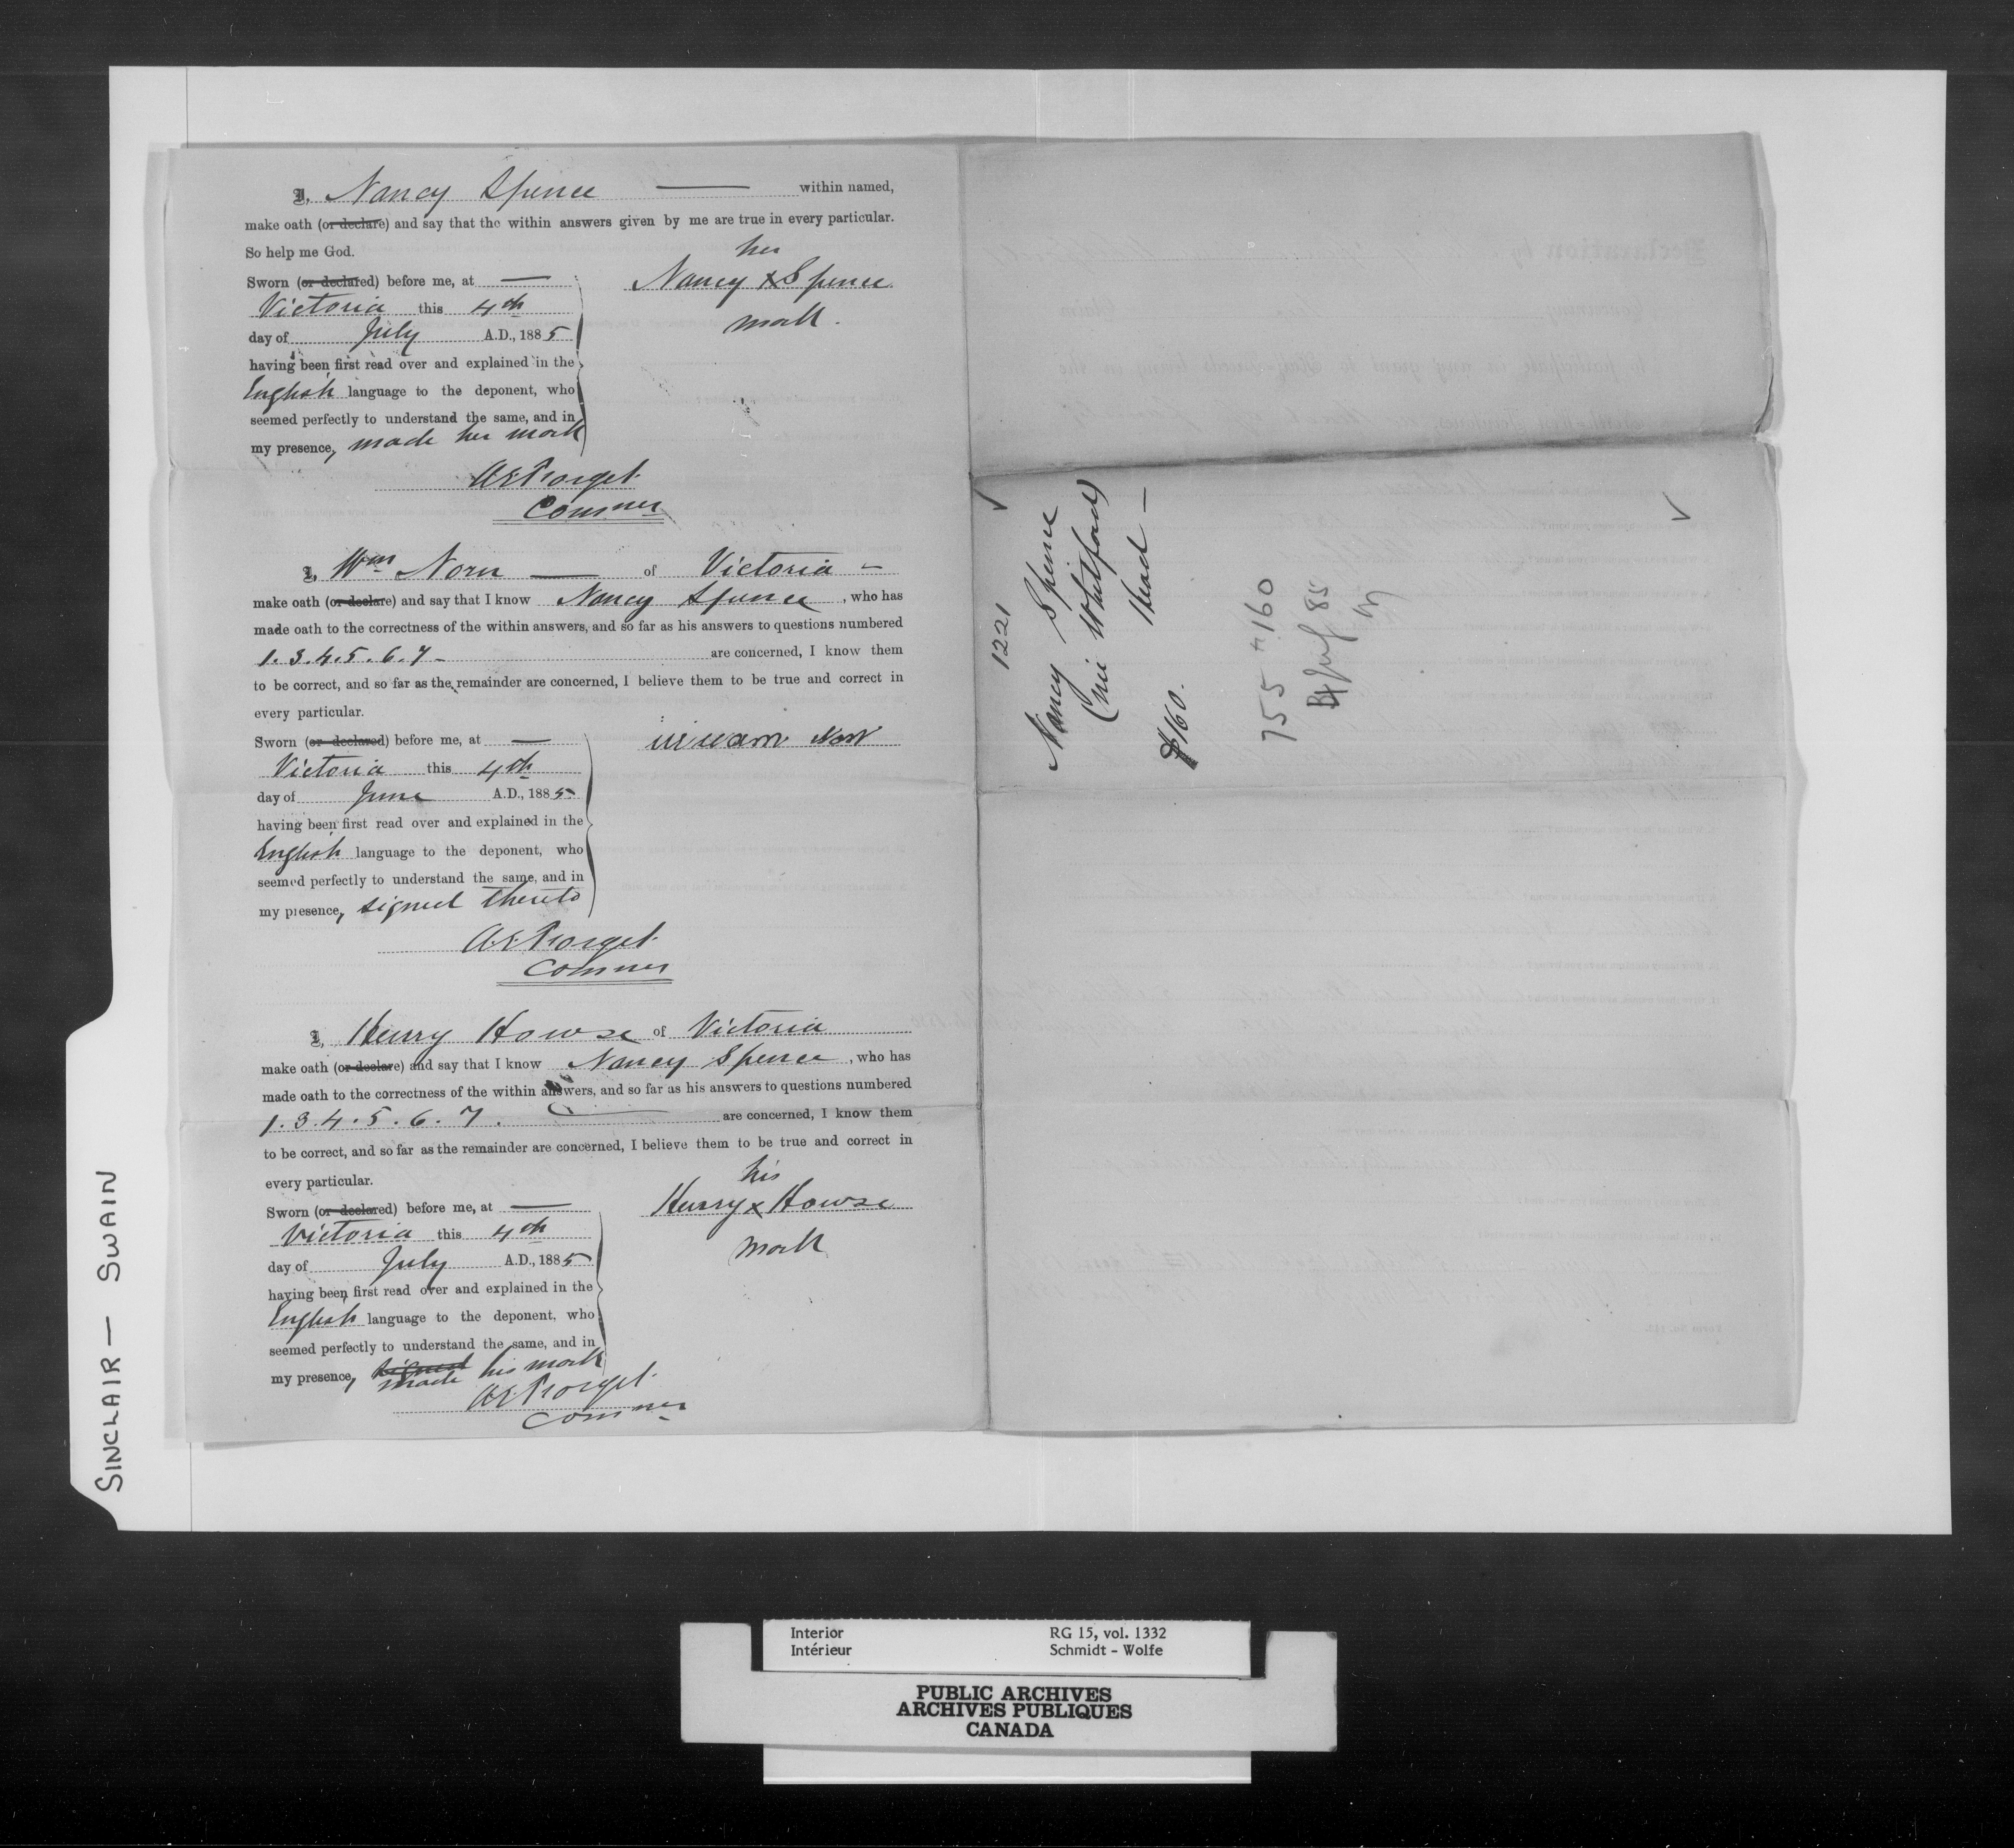 I, Nancy Spence — within named,
make oath (or declare) and say that the within answers given by me are true in every particular.
So help me God.
her
Nancy x Spence
mark.
Sworn (or declared) before me, at —
Victoria this 4th
day of July A.D., 1885
having been first read over and explained in the
English language to the deponent, who
seemed perfectly to understand the same, and in
my presence, made her mark
A. E. Forget
Commer
I, Wm Norn — of Victoria –
make oath (or declare) and say that I know Nancy Spence, who has
made oath to the correctness of the within answers, and so far as his answers to questions numbered
1. 3. 4. 5. 6. 7 - are concerned, I know them
to be correct, and so far as the remainder are concerned, I believe them to be true and correct in
every particular.
Sworn (or declared) before me, at —
Victoria this 4th
day of June A.D., 1885
having been first read over and explained in the
English language to the deponent, who
seemed perfectly to understand the same, and in
my presence, signed thereto
A. E. Forget
Commer
I, Henry Howse of Victoria
make oath (or declare) and say that I know Nancy Spence, who has
made oath to the correctness of the within answers, and so far as his answers to questions numbered
1. 3. 4. 5. 6. 7. are concerned, I know them
to be correct, and so far as the remainder are concerned, I believe them to be true and correct in
every particular.
his
Henry x Howse
mark
Sworn (or declared) before me, at —
Victoria this 4th
day of July A.D., 1885
having been first read over and explained in the
English language to the deponent, who
seemed perfectly to understand the same, and in
my presence, signed made his mark
A. E. Forget
Commer
1221
Nancy Spence
(née Whitford)
Head —
$160.
755 160
85
SINCLAIR — SWAIN
Interior RG 15, vol. 1332
Intérieur Schmidt - Wolfe
PUBLIC ARCHIVES
ARCHIVES PUBLIQUES
CANADA